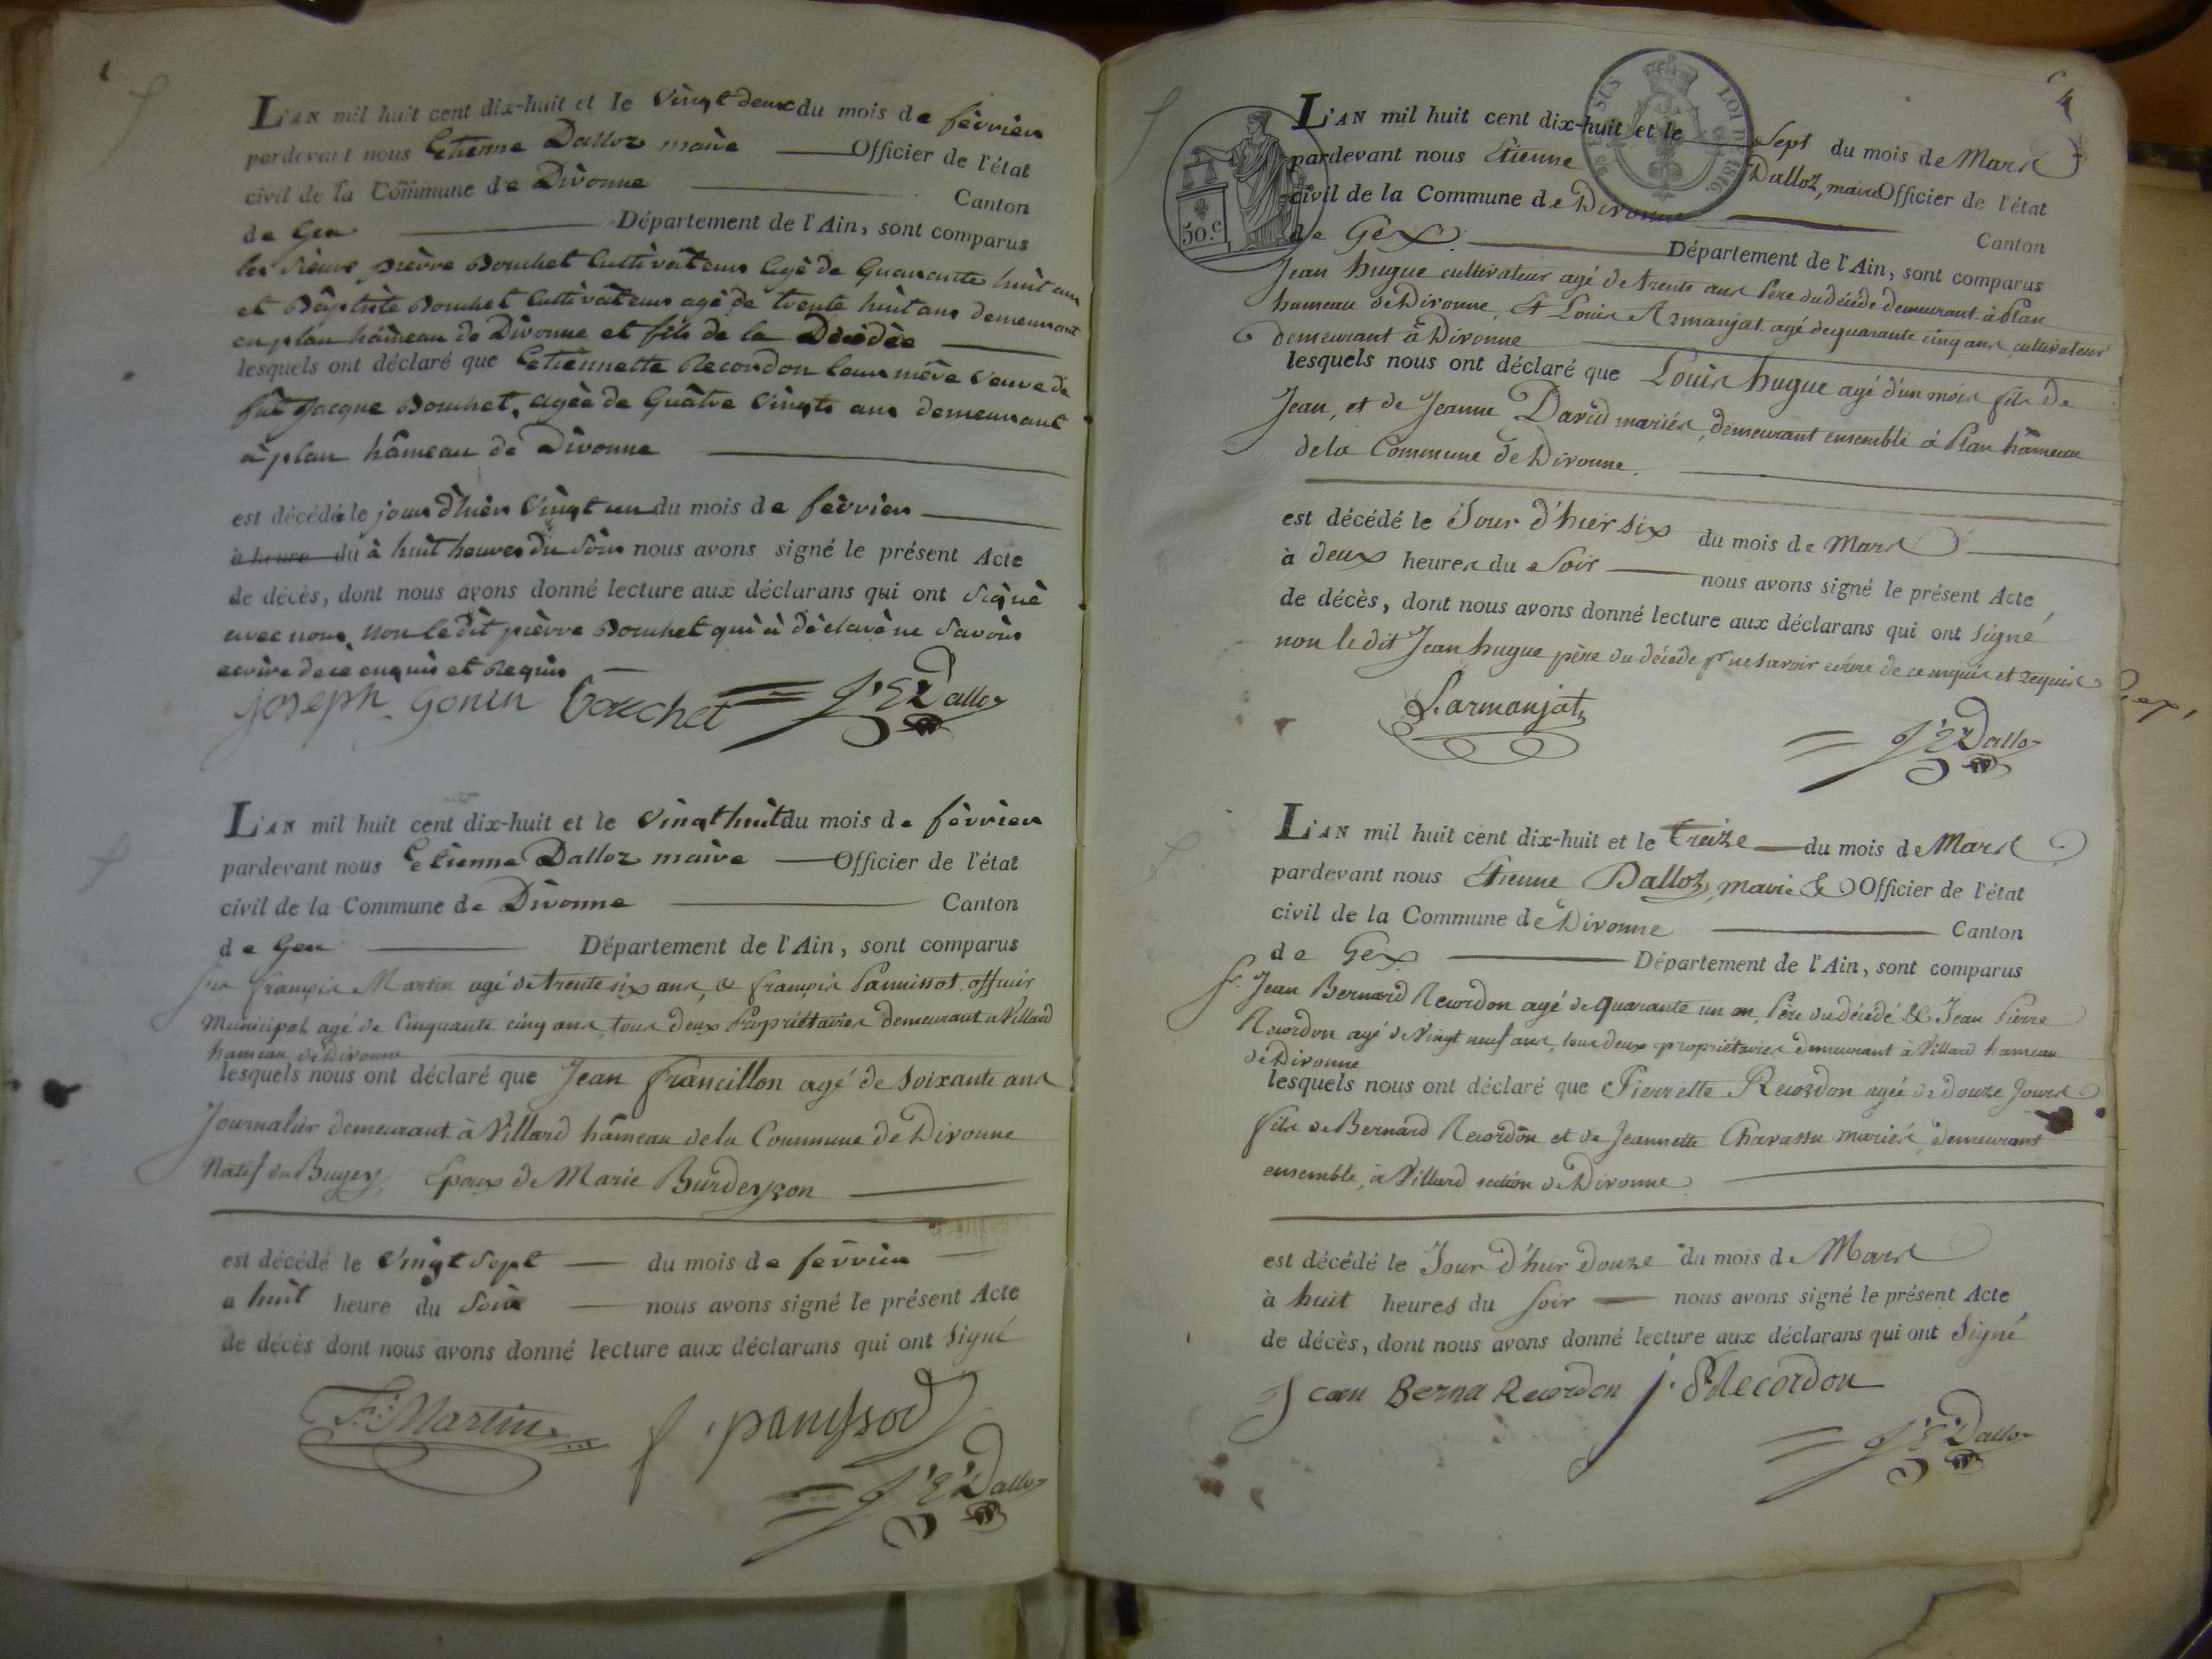 L'AN mil huit cent dix-huit et le Vingt deux du mois de fèvrier
pardevant nous Etienne Dalloz maire Officier de l'état
civil de la Commune de Divonne Canton
de Gex Département de l'Ain, sont comparus
les Sieurs pierre Bouchet Cultivateur agé de Quarante huit ans
et Baptiste Bouchet Cultivateur agé de trente huit ans demeurant
en plan hâmeau de Divonne et fils de la Décédée
lesquels ont déclaré que Etiennette Recordon leur mère Veuve de
fût Jacque Bouchet, agée de Quâtre Vingts ans demeurant
à plan hâmeau de Divonne
est décédée le jour d'hièr Vingt un du mois de fèvrier
à heure du à huit heures du Soir nous avons signé le présent Acte
de décès, dont nous avons donné lecture aux déclarans qui ont signé
avec nous, Non Ledit pièrre Bouchet qui à dèclaré ne Savoir
ecrire de ce enquis et Requis
joseph Gonin Bouchet J. E Dalloz
L'AN mil huit cent dix-huit et le Vingt huit du mois de fèvrier
pardevant nous Etienne Dalloz maire Officier de l'état
civil de la Commune de Divonne Canton
de Gex Département de l'Ain, sont comparus
françois Martin agé de trente six ans, & françois Pannissot officier
Municipal, agé de Cinquante cinq ans, tous deux Propriétaires demeurant à Villard
hameau de Divonne
lesquels nous ont déclaré que Jean francillon agé de soixante ans
Journalier demeurant à Villard hâmeau de la Commune de Divonne
Natif du Bugey, Epoux de Marie
est décédé le Vingt Sept du mois de fevrier
a huit heure du Soir nous avons signé le présent Acte
de décès dont nous avons donné lecture aux déclarans qui ont Signé
F. Martin f. panyssod
J. E. Dalloz
4
L'AN mil huit cent dix-huit et le Sept du mois de Mars
pardevant nous Etienne Dalloz, maire Officier de l'état
civil de la Commune de Divonne Canton
de Gèx Département de l'Ain, sont comparus
Jean hugue cultivateur agé de trente ans Père du décédé demeurant à Plan
hameau de Divonne, Et Louis Armanjat agé de quarante cinq ans, cultivateur
demeurant à Divonne
lesquels nous ont déclaré que Louis hugue agé d'un mois fils de
Jean, et de Jeanne David mariés, demeurant ensemble à Plan hâmeau
de la Commune de Divonne.
est décédé le Jour d'hier six du mois de Mars
à deux heures du Soir nous avons signé le présent Acte
de décès, dont nous avons donné lecture aux déclarans qui ont Signé
non le dit Jean hugue père du décédé pr ne savoir ecrire de ce enquis et requis
L. armanjat
J. E Dalloz
L'AN mil huit cent dix-huit et le treize du mois de Mars
pardevant nous Etienne Dalloz, maire & Officier de l'état
civil de la Commune de Divonne Canton
de Gex Département de l'Ain, sont comparus
Sr. Jean Bernard Recordon agé de quarante un an, Père du décédé & Jean Pierre
Recordon agé de Vingt neuf ans, tous deux propriétaires demeurant à Villard hameau
de Divonne
lesquels nous ont déclaré que Pierrette Recordon agée de douze Jours
fils de Bernard Recordon et de Jeannette Chavassu mariés, demeurant
ensemble, à Villard section de Divonne
est décédé le Jour d'hier douze du mois de Mars
à huit heures du soir nous avons signé le présent Acte
de décès, dont nous avons donné lecture aux déclarans qui ont Signé
Jean Berna Recordon J. P Recordon
J. E. Dalloz
50.c
EN SUS
LOI DE 1816.